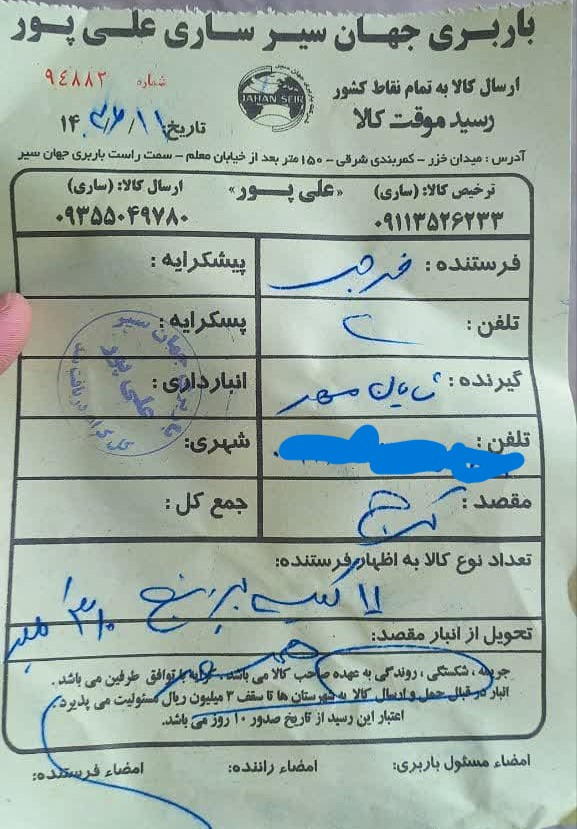 باربری جهان سیر ساری علی پور
ارسال کالا به تمام نقاط کشور
شماره ۹۴۸۸۲
JAHAN SEIR
رسید موقت کالا
تاریخ: ۱۴
آدرس : میدان خزر - کمربندی شرقی - ۱۵۰ متر بعد از خیابان معلم - سمت راست باربری جهان سیر
ترخیص کالا: (ساری) «علی پور» ارسال کالا: (ساری)
۰۹۱۱۳۵۲۶۲۳۳ ۰۹۳۵۵۰۴۹۷۸۰
فرستنده : پیشکرایه :
تلفن : پسکرایه :
گیرنده : شایان مهر انبارداری :
تلفن : شهری:
مقصد : کرج جمع کل :
جهان سیر
علی پور
تعداد نوع کالا به اظهار فرستنده:
کیسه برنج
تحویل از انبار مقصد:
جریمه ، شکستگی ، روندگی به عهده صاحب کالا می باشد ، کرایه با توافق طرفین می باشد .
انبار در قبال حمل و ارسال کالا به شهرستان ها تا سقف ۳ میلیون ریال مسئولیت می پذیرد .
اعتبار این رسید از تاریخ صدور ۱۰ روز می باشد.
امضاء مسئول باربری: امضاء راننده: امضاء فرستنده: